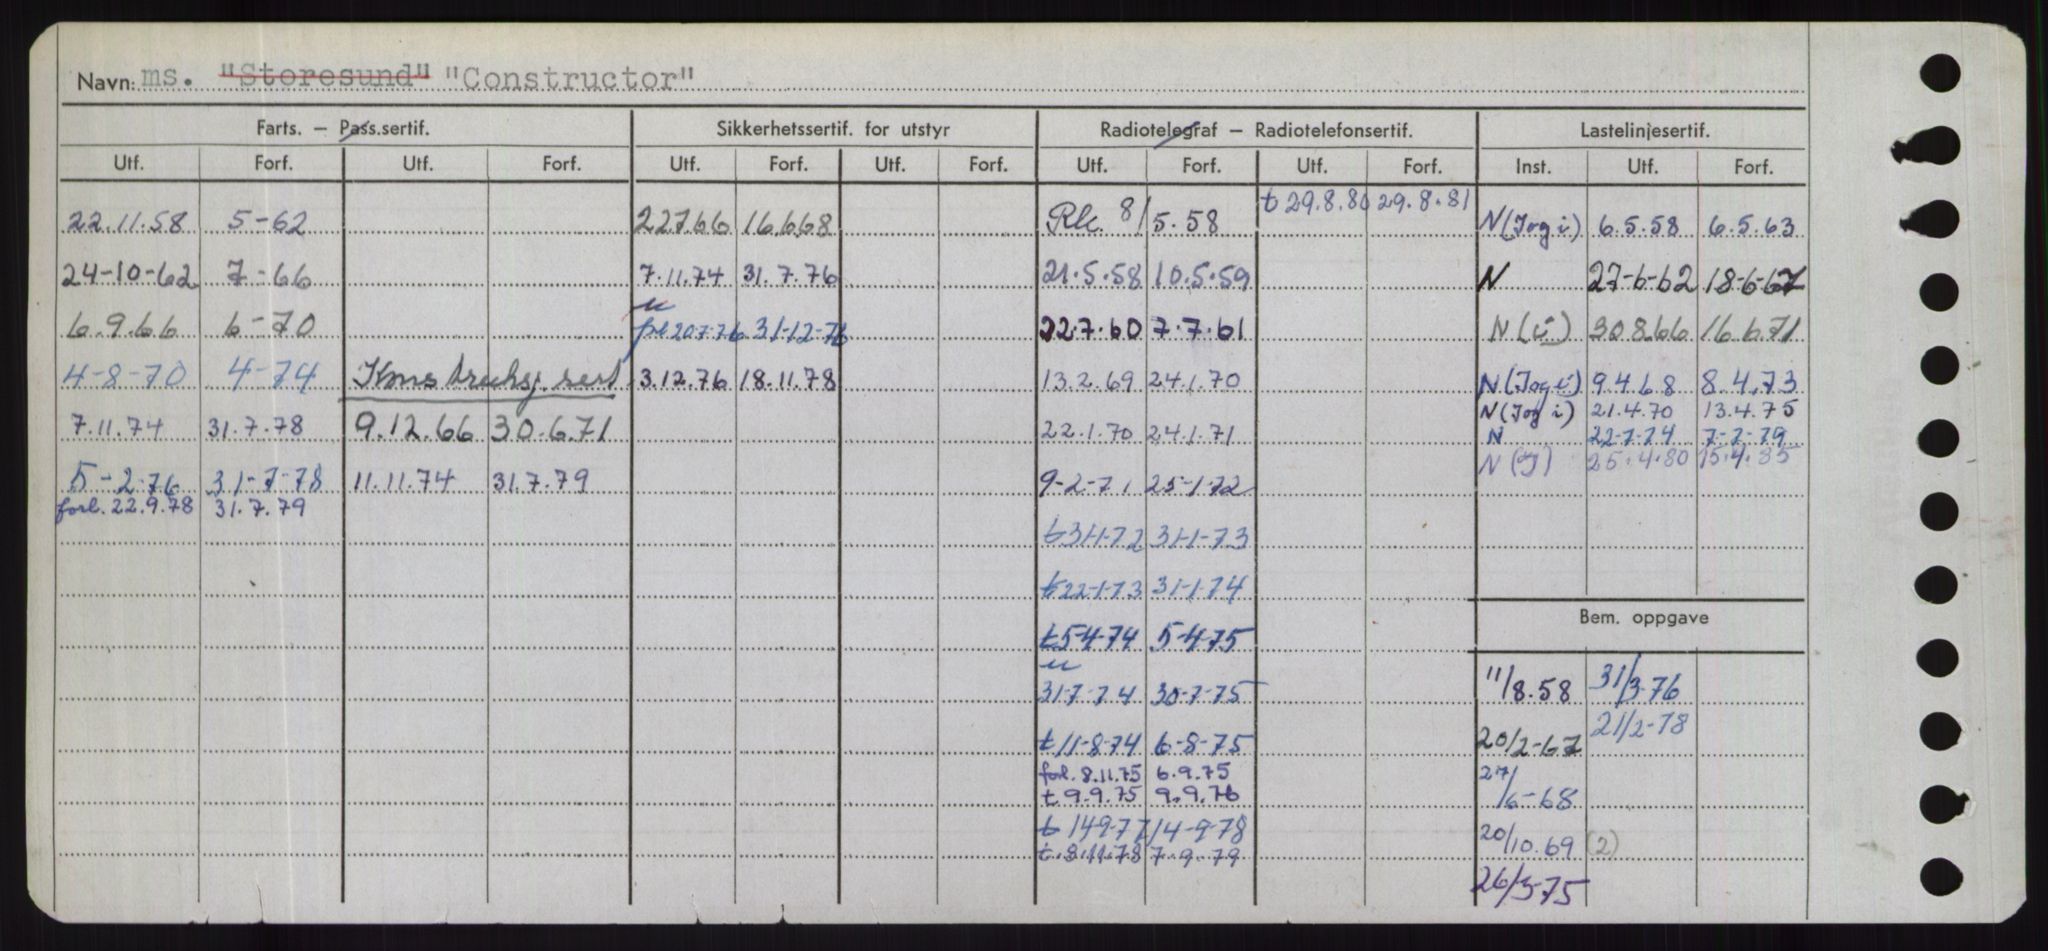 Navn: ms. "Storesund" "Constructor"
Farts. — Pass.sertif. Sikkerhetssertif. for utstyr Radiotelegraf — Radiotelefonsertif. Lastelinjesertif.
Utf. Forf. Utf. Forf. Utf. Forf. Utf. Forf. Utf. Forf. Utf. Forf. Inst. Utf. Forf.
t 29.8.80 29.8.81
22.11.58 5-62 22.7.66 16.6.68 Rk. 8/5.58 N (J og i) 6.5.58 6.5.63
24-10-62 7-66 7.11.74 31.7.76 21.5.58 10.5.59 N 27-6-62 18-6-67
6.9.66 6-70 20.7.76 31-12-76 22.7.60 7.7.61 N (i) 30.8.66 16.6.71
4-8-70 4-74 Konstruksj. sert 3.12.76 18.11.78 13.2.69 24.1.70 N (J og i) 9.4.68 8.4.73
N (J og i) 21.4.70 13.4.75
7.11.74 31.7.78 9.12.66 30.6.71 22.1.70 24.1.71 N 22-7-74 7-7-79
N (J) 25.4.80 15.4.85
5-2-76 31-7-78 11.11.74 31.7.79 9-2-71 25-1-72
forl. 22.9.78 31.7.79
t 31-1-72 31-1-73
t 22-1-73 31-1-74
Bem. oppgave
t 5-4-74 5-4-75
u
31-7-74 30-7-75 11/8.58 31/3-76
21/2-78
t 11-8-74 6-8-75 20/2-67
forl. 8.11.75 6.9.75 27/6-68
t 9.9.75 9.9.76
t 14-9-77 14-9-78 20/10.69 (2)
t. 8.11.78 7.9.79
26/3-75